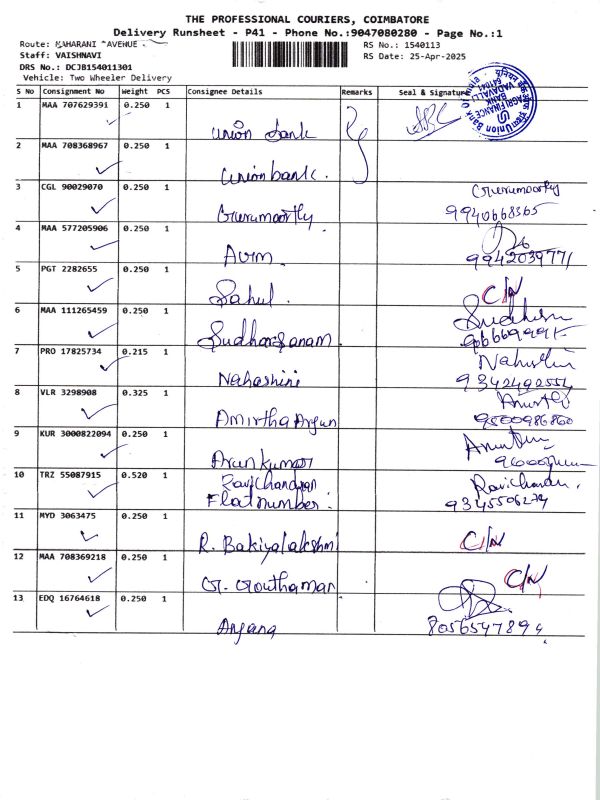 THE PROFESSIONAL COURIERS, COIMBATORE
Delivery Runsheet - P41 - Phone No.:9047080280 - Page No.:1
Route: MAHARANI AVENUE
Staff: VAISHNAVI
DRS No.: DCJB154011301
Vehicle: Two Wheeler Delivery
RS No.: 1540113
RS Date: 25-Apr-2025
S No Consignment No Weight PCS Consignee Details Remarks Seal & Signature
1 MAA 707629391 0.250 1 Union Bank
2 MAA 708368967 0.250 1 Union bank.
3 CGL 90029070 0.250 1 Gurumoorthy Gurumoorthy 9940668365
4 MAA 577205906 0.250 1 Avm. 9942039771
5 PGT 2282655 0.250 1 Sahul. C/N
6 MAA 111265459 0.250 1 Sudharsanam
7 PRO 17825734 0.215 1 Naharhini 9342492554
8 VLR 3298908 0.325 1 Amirtha Arjun 9500986860
9 KUR 3000822094 0.250 1 Arunkumar
10 TRZ 55087915 0.520 1 Ravichandran Flat number: 9345506274
11 MYD 3063475 0.250 1 R. Bakiyalakshmi C/N
12 MAA 708369218 0.250 1 G. Gouthaman C/N
13 EDQ 16764618 0.250 1 Anjana 8056547894
Union Bank Of India
AGRI FINANCE BANK
VADAVALLI
641041